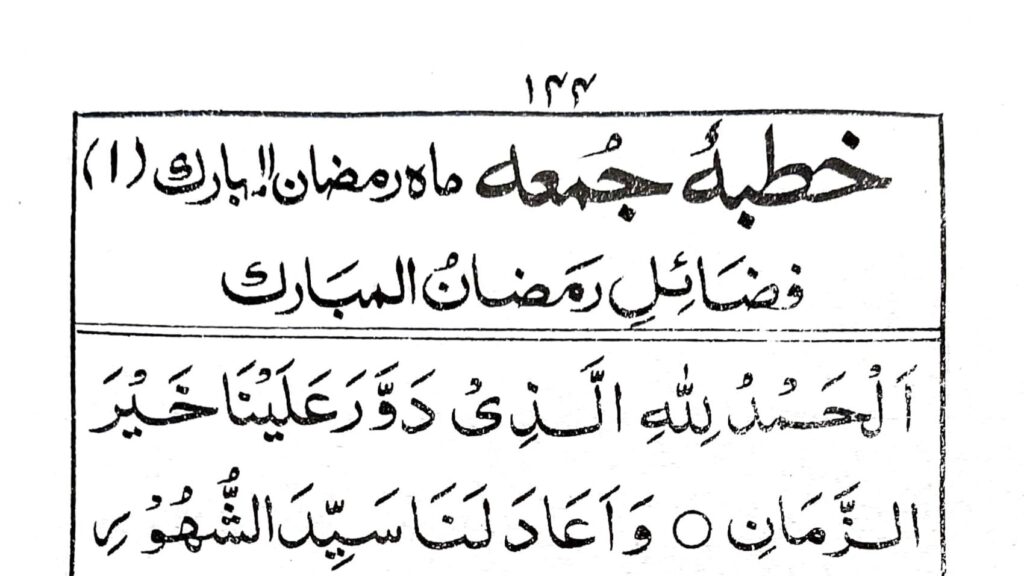 ۱۴۴
خطبۂ جُمعہ ماہ رمضان المبارک (۱)
فضَائِلِ رَمَضانُ المبَارك
اَلْحَمْدُ لِلّٰهِ الَّذِیْ دَوَّرَ عَلَیْنَا خَیْرَ
الزَّمَانِ ○ وَاَعَادَ لَنَا سَیِّدَ الشُّهُوْرِ